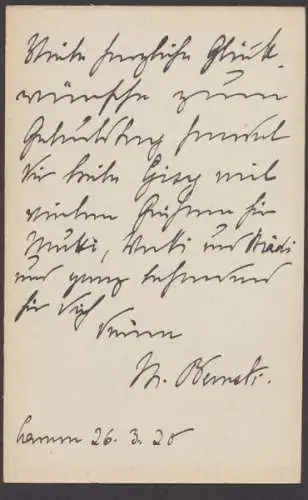 Viele herzliche Glück-
wünsche zum
Geburtstag sendet
Dir liebe Gisy mit
vielen Grüßen für
Mutti, Vati und
und ganz besonders
für Dich
Deine
M.
Hamm 26. 3. 20